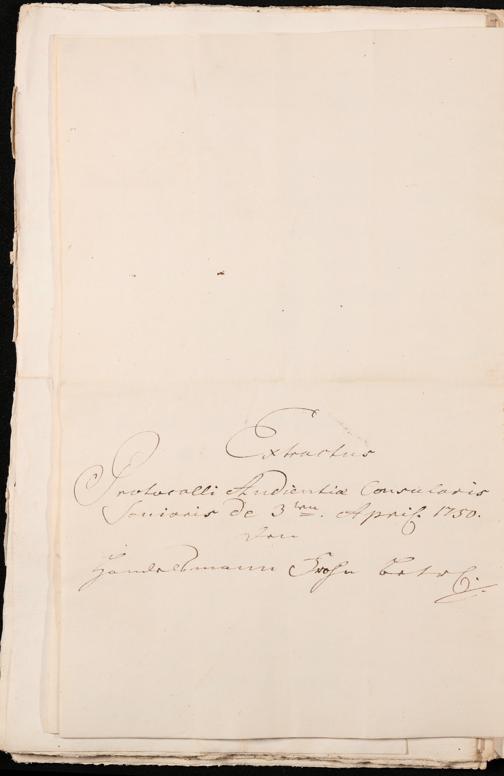 Extractus
Protocolli Audientiæ Consularis
Senioris de 3ten. April. 1750.
den
Handelsmann Frohn betrf.